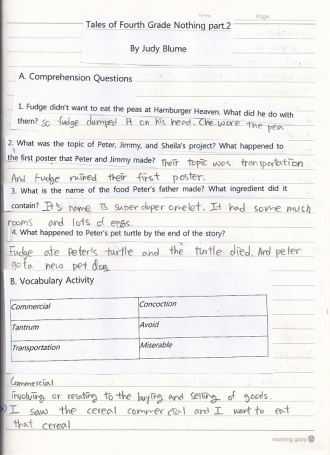 Page
Tales of Fourth Grade Nothing part.2
By Judy Blume
A. Comprehension Questions
1. Fudge didn't want to eat the peas at Hamburger Heaven. What did he do with
them? so fudge dumped it on his head. che wore the pea
2. What was the topic of Peter, Jimmy, and Sheila's project? What happened to
the first poster that Peter and Jimmy made? Their topic was transportation
And Fudge ruined their first poster.
3. What is the name of the food Peter's father made? What ingredient did it
contain? It's name is super duper omelet. It had some mush
rooms and lots of eggs.
4. What happened to Peter's pet turtle by the end of the story?
Fudge ate Peter's turtle and the turtle died. And peter
got a new pet dog
B. Vocabulary Activity
Commercial Concoction
Tantrum Avoid
Transportation Miserable
Commercial
Involving or relating to the buying and selling of goods.
I saw the cereal commercial and I want to eat
that cereal
morning glory